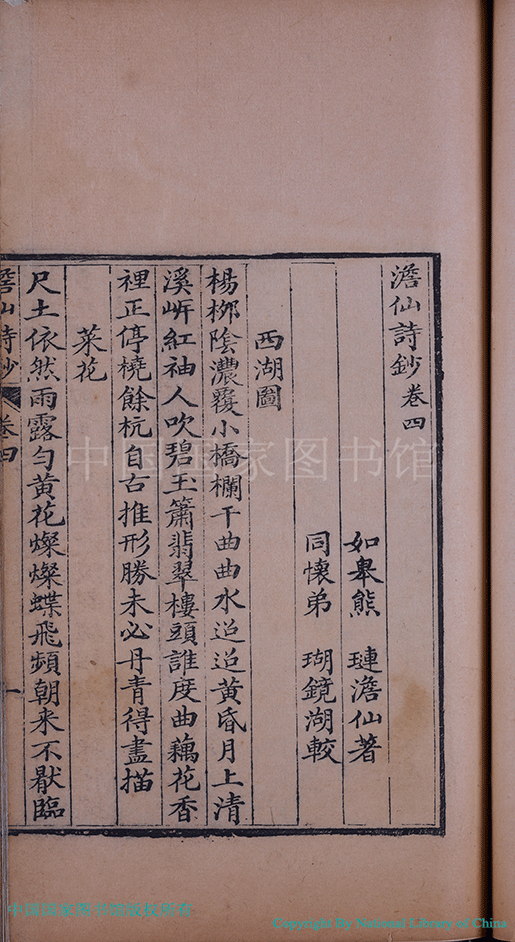 澹仙詩鈔卷四
如皋熊 璉澹仙著
同懷弟 瑚鏡湖較
西湖圖
楊栁陰濃覆小橋欄干曲曲水迢迢黃昏月上清
溪岍紅袖人吹碧玉簫翡翠樓頭誰度曲藕花香
裡正停橈餘杭自古推形勝未必丹青得盡描
菜花
尺土依然雨露勻黃花燦燦蝶飛頻朝来不厭臨
澹仙詩鈔 卷四 一
中国国家图书馆
中国国家图书馆版权所有
Copyright By National Library of China